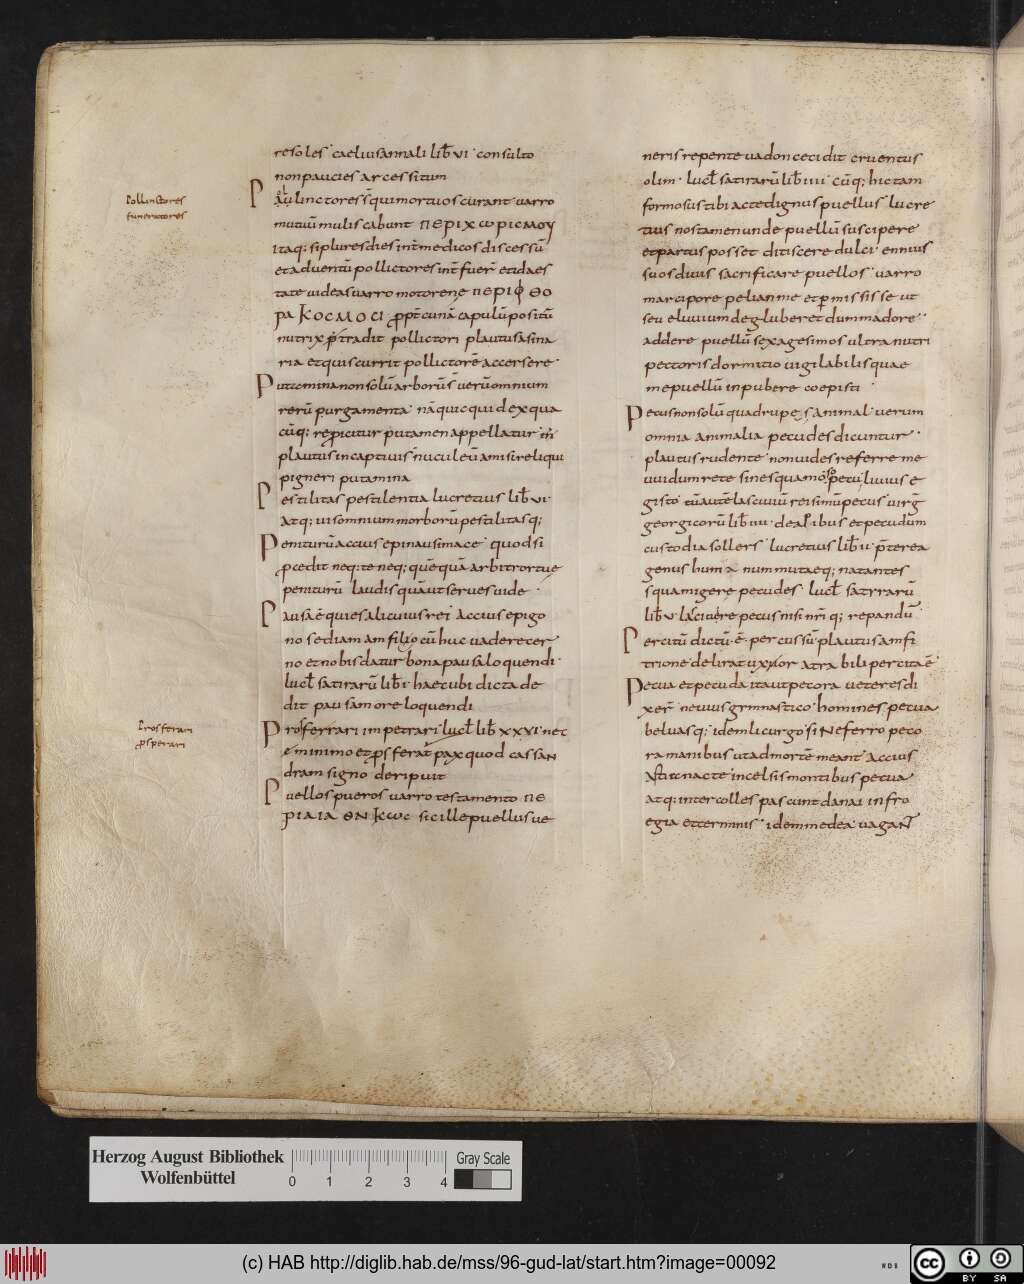 resoles caelius annali lib̅ vi consulto
non paucies arcessitum
Pollinctores
funeratores
linctores s̅ qui mortuos curant varro
mutuu̅ muli scabunt ΠΕΡΙΧωΡΙCΜΟΥ
itaq; si plures dies int̅ medicos discessu̅
et adventu̅ pollictores int̅ fuer̅ et idaes
tate videas varro motorene ΠΕΡΙΦΘΟ
ΡΑ ΚΟCΜΟCΙ ꝓpt̅ cuna̅ capulu̅ positu̅
nutrix p̅ tradit pollictori plautus asina
ria et quis currit pollictore̅ accersere
Putamina non solu̅ arboru̅ s̅ veru̅ omnium
reru̅ purgamenta na̅ quicquid ex qua
cu̅q; re ꝓicitur putamen appellatur
plautus in captivis nuculeu̅ amisi reliqui
pigneri putamina
Pestilitas pestilentia lucretius lib̅ vi
atq; vis omnium morboru̅ pestilitasq;
Penituru̅ accius epinausimace quod si
ꝓcedit neq; te neq; que̅qua̅ arbitror tue
penituru̅ laudis qua̅ ut serves vide
Pausa e̅ quies alicuius rei Accius epigo
no sed iam amfilio cu̅ huc vadere cer
no et nobis datur bona pausa loquendi
lucl̅ satiraru̅ lib̅ i haec ubi dicta de
dit pausam ore loquendi
Prosferari
ꝓsperari
Prosferrari impetrari lucl̅ lib̅ xxvi nec
minimo et prosferat̅ pax quod cassan
dram signo deripuit
Puellos pueros varro testamento ΠΕ
ΡΙΑΙΑ ΘΝ Κωc sic ille puellus ve
neris repente vadon cecidit cruentus
olim lucl̅ satiraru̅ lib̅ iiii cu̅q; hic tam
formosus tibi ac te dignus puellus lucre
tius nos tamen unde puellu̅ suscipere
et partus posset ditiscere dulci ennius
suos divis sacrificare puellos varro
marcipore pelianme et p̱mississe ut
seu eluvium degluberet dum madore
addere puellu̅ sexagesimos ultra nutri
pectoris dormitio vigilabilis quae
me puellu̅ inpubere coepisti
Pecus non solu̅ quadrupes s animal verum
omnia animalia pecudes dicuntur
plautus rudente non vides referre me
uvidum rete sine squamoso pecu livius e
gisto tu̅ aute̅ lascivu̅ rei simu̅ pecus virg̅
georgicoru̅ lib̅ iiii de apibus et pecudum
custodia sollers lucretius lib̅ ii p̅terea
genus humanum mutaeq; natantes
squamigere pecudes lucl̅ satiraru̅
lib̅ v lascivire pecus nisi nr̅i q; repandu̅
Percitu̅ dictu̅ e̅ percussu̅ plautus amfi
trione delirat uxor atra bili percita e̅
Pecua et pecuda ita ut pecora veteres di
xer̅ nevius gymnastico homines pecua
beluasq; idem licurgo si Ne ferro peco
ra manibus ut ad morte̅ meant Accius
Astit nacte in celsis montibus pecua
atq; inter colles pascunt danai in fro
egia et terminis idem medea vagant
Herzog August Bibliothek
Wolfenbüttel
0 1 2 3 4
Gray Scale
(c) HAB http://diglib.hab.de/mss/96-gud-lat/start.htm?image=00092
WDB
CC BY SA